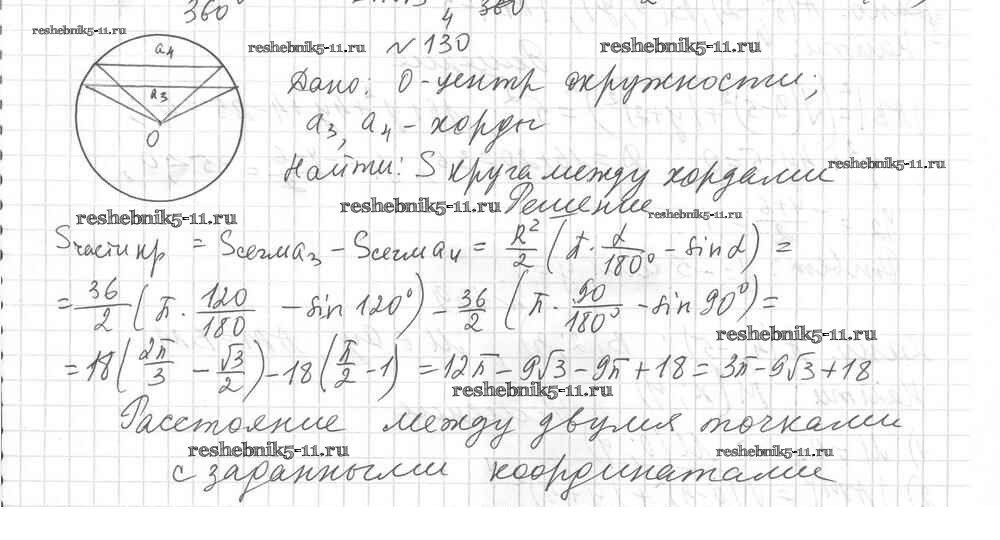 360° 4 360
reshebnik5-11.ru
a₄
a₃
O
reshebnik5-11.ru № 130 reshebnik5-11.ru
Дано: O - центр окружности;
a₃, a₄ - хорды
Найти: S круга между хордами reshebnik5-11.ru
reshebnik5-11.ru reshebnik5-11.ru Решение reshebnik5-11.ru
Sчасти кр = Sсегм a₃ - Sсегм a₄ = R²/2 (π · α/180° - sin α) =
= 36/2 (π · 120/180 - sin 120°) - 36/2 (π · 90/180° - sin 90°) =
reshebnik5-11.ru
= 18 (2π/3 - √3/2) - 18 (π/2 - 1) = 12π - 9√3 - 9π + 18 = 3π - 9√3 + 18
reshebnik5-11.ru
Расстояние между двумя точками
reshebnik5-11.ru reshebnik5-11.ru
с заданными координатами